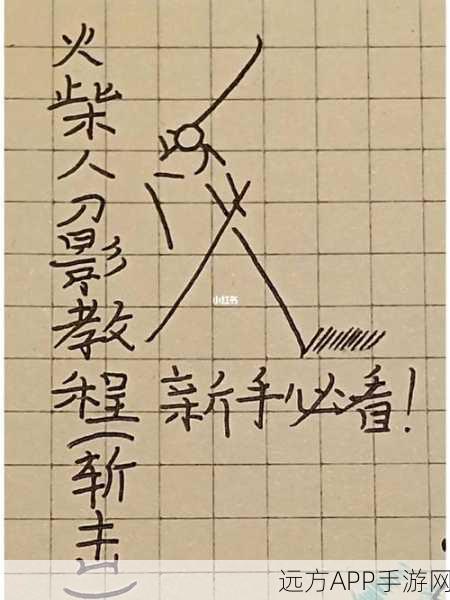 火柴人刀影教程(斩击)
小红书
新手必看!
远方APP手游网